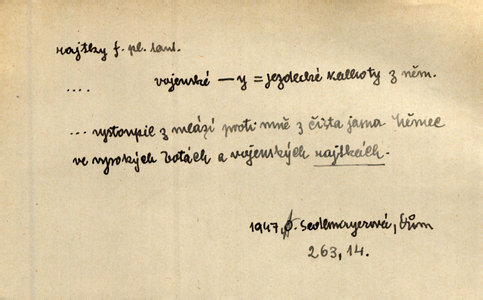 rajtky f. pl. tant.
.... vojenské — y = jezdecké kalhoty z něm.
... vystoupil z mlází proti mně z čista jasna Němec
ve vysokých botách a vojenských rajtkách.
1947, O. Sedlmayerová, Dům
263, 14.